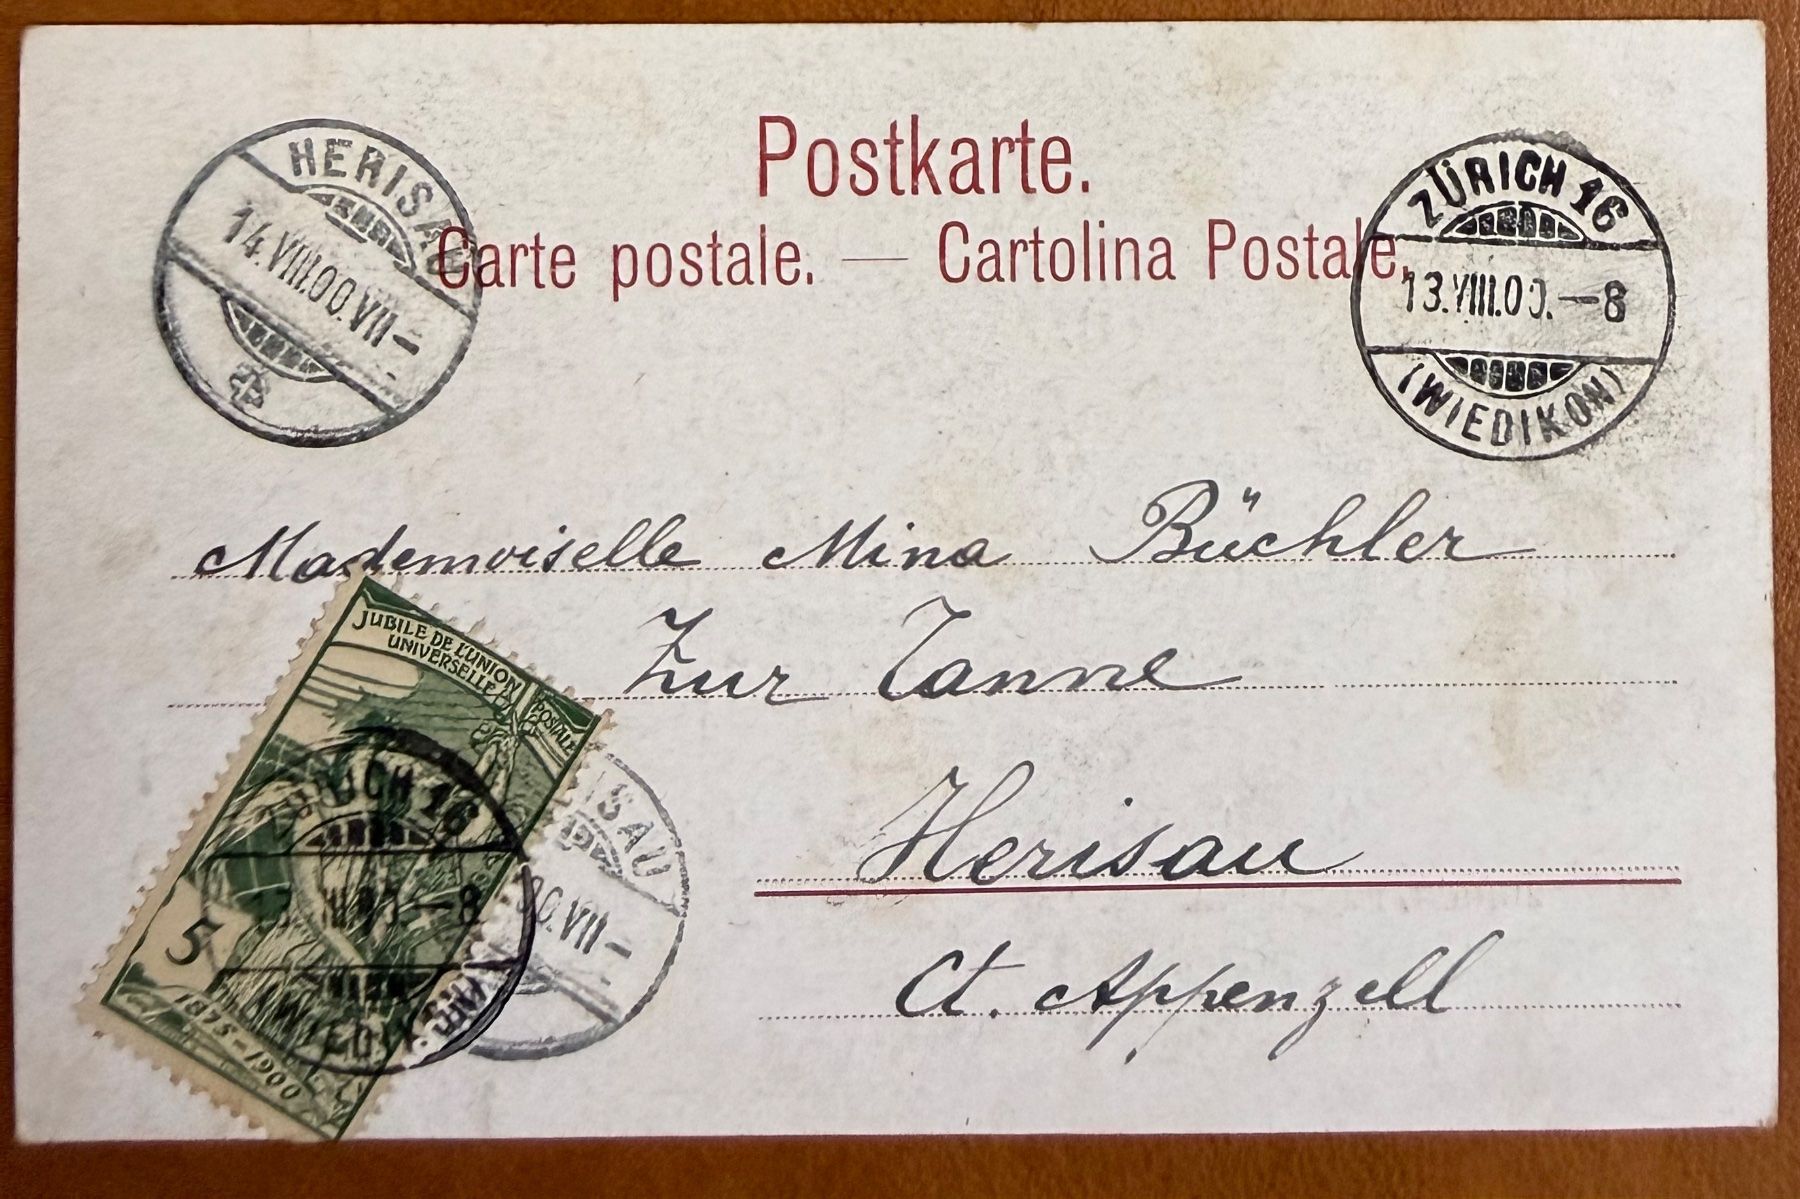 Postkarte.
Carte postale. — Cartolina Postale.
HERISAU
14.VIII.00.VII–
ZÜRICH 16
13.VIII.00.–8
(WIEDIKON)
Mademoiselle Mina Büchler
Zur Tanne
Herisau
Ct. Appenzell
JUBILE DE L'UNION
UNIVERSELLE
POSTALE
5
1875–1900
ZÜRICH 16
–8
ISAU
00.VII–